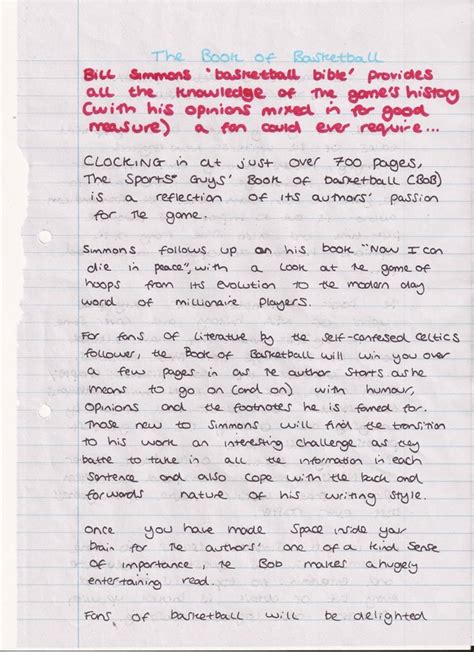 The Book of Basketball
Bill Simmons 'basketball bible' provides
all the knowledge of the game's history
(with his opinions mixed in for good
measure) a fan could ever require...
CLOCKING in at just over 700 pages,
The Sports Guys' Book of Basketball (BoB)
is a reflection of its authors' passion
for the game.
Simmons follows up on his book "Now I can
die in peace", with a look at the game of
hoops from its evolution to the modern day
world of millionaire players.
For fans of literature by the self-confesed Celtics
follower, the Book of Basketball will win you over
a few pages in as the author starts as he
means to go on (and on) with humour,
opinions and the footnotes he is famed for.
Those new to Simmons will find the transition
to his work an interesting challenge as they
battle to take in all the information in each
sentence and also cope with the back and
forwards nature of his writing style.
Once you have made space inside your
brain for the authors' one of a kind sense
of importance, the BoB makes a hugely
entertaining read.
Fans of basketball will be delighted